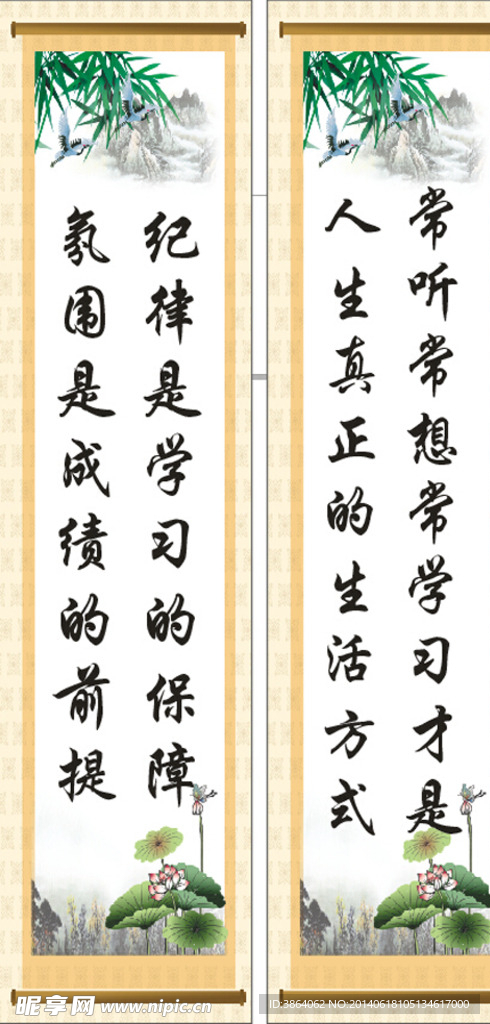 纪律是学习的保障
氛围是成绩的前提
常听常想常学习才是
人生真正的生活方式
昵享网 www.nipic.cn
ID:3864062 NO:20140618105134617000